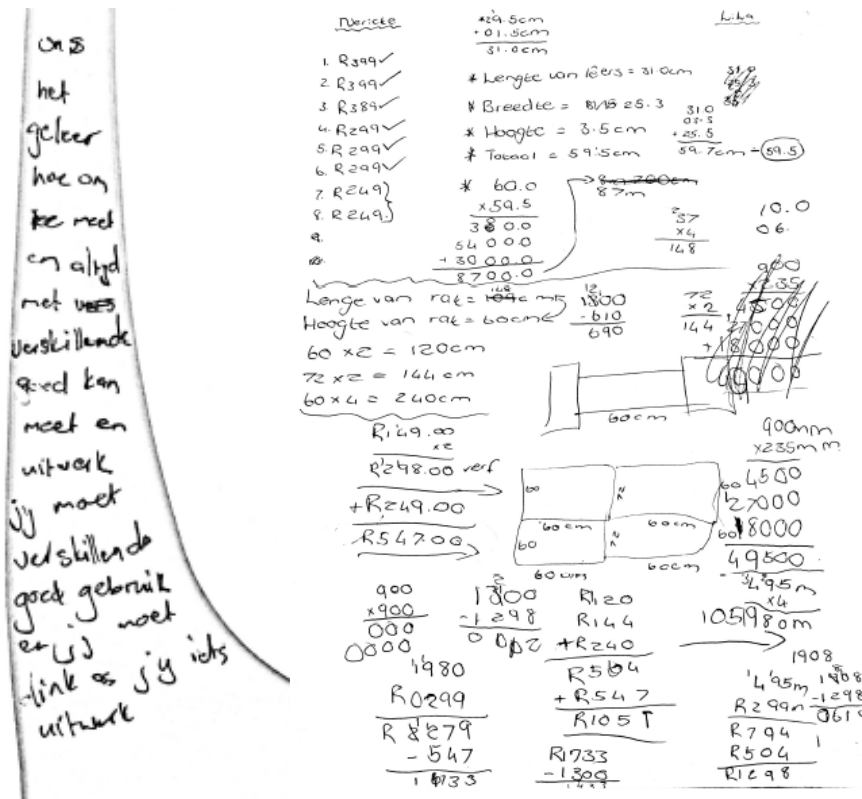 ons
het
geleer
hoe om
te meet
en altyd
met
verskillende
goed kan
meet en
uitwerk
jy moet
verskillende
goed gebruik
en jy moet
dink as jy iets
uitwerk
29.5cm
+01.5cm
31.0cm
1. R399✓
2. R399✓
3. R389✓
4. R299✓
5. R299✓
6. R299✓
7. R249
8. R249
9.
* Lengte van lêers = 31.0cm
* Breedte = 25.3
* Hoogte = 3.5cm
* Totaal = 59.5cm
31.0
+25.5
59.7cm = 59.5
* 60.0
×59.5
54000
+30000.0
8700.0
87m
37
×4
148
10.0
06.
Lengte van rak = 148cm
Hoogte van rak = 60cm
60 ×2 = 120cm
72 ×2 = 144cm
60×4 = 240cm
1300
-610
690
72
×2
144
60cm
R149.00
×2
R298.00 verf
+R249.00
R547.00
60
60cm
60cm
60
60cm
60cm
900mm
×235mm
4500
27000
18000
49500
495m
×4
1980m
900
×900
000
0000
1300
-1298
R120
R144
+R240
R504
+R547
R1051
1980
R0299
R2279
-547
1733
R1733
-1300
1908
495m
R299
R794
R504
R1298
1908
-1298